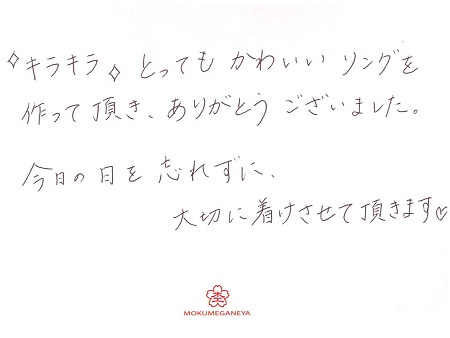 ✧キラキラ✧とってもかわいいリングを
作って頂き、ありがとうございました。
今日の日を忘れずに、
大切に着けさせて頂きます♡
MOKUMEGANEYA